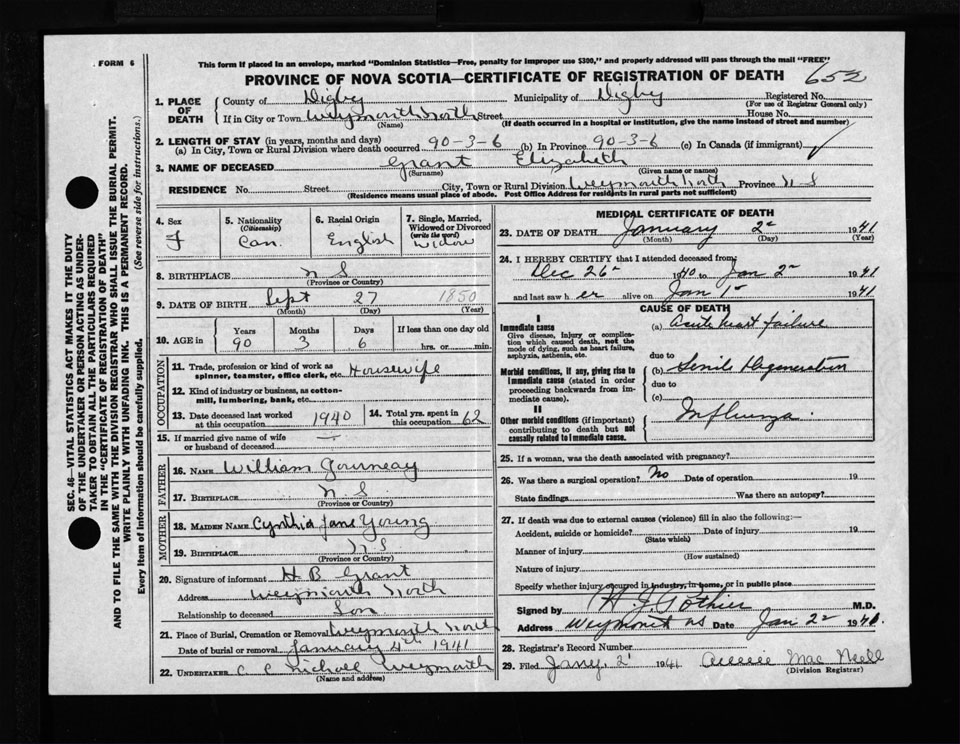 FORM 6
This form if placed in an envelope, marked "Dominion Statistics—Free, penalty for improper use $300," and properly addressed will pass through the mail "FREE"
PROVINCE OF NOVA SCOTIA—CERTIFICATE OF REGISTRATION OF DEATH 652
SEC. 46—VITAL STATISTICS ACT MAKES IT THE DUTY
OF THE UNDERTAKER OR PERSON ACTING AS UNDER-
TAKER TO OBTAIN ALL THE PARTICULARS REQUIRED
IN THE "CERTIFICATE OF REGISTRATION OF DEATH"
AND TO FILE THE SAME WITH THE DIVISION REGISTRAR WHO SHALL ISSUE THE BURIAL PERMIT.
WRITE PLAINLY WITH UNFADING INK. THIS IS A PERMANENT RECORD.
Every item of information should be carefully supplied. (See reverse side for instructions.)
1. PLACE OF DEATH
County of Digby Municipality of Digby Registered No.
(For use of Registrar General only)
If in City or Town Weymouth North Street House No.
(Name) (If death occurred in a hospital or institution, give the name instead of street and number)
2. LENGTH OF STAY (in years, months and days)
(a) In City, Town or Rural Division where death occurred 90-3-6 (b) In Province 90-3-6 (c) In Canada (if immigrant) ✓
3. NAME OF DECEASED Grant Elizabeth
(Surname) (Given name or names)
RESIDENCE No. Street City, Town or Rural Division Weymouth North Province N S
(Residence means usual place of abode. Post Office Address for residents in rural parts not sufficient)
4. Sex F
5. Nationality (Citizenship) Can.
6. Racial Origin English
7. Single, Married, Widowed or Divorced (write the word) Widow
8. BIRTHPLACE N S
(Province or Country)
9. DATE OF BIRTH Sept 27 1850
(Month) (Day) (Year)
10. AGE in Years 90 Months 3 Days 6 If less than one day old hrs. or min.
OCCUPATION
11. Trade, profession or kind of work as spinner, teamster, office clerk, etc. Housewife
12. Kind of industry or business, as cotton-mill, lumbering, bank, etc.
13. Date deceased last worked at this occupation 1940
14. Total yrs. spent in this occupation 62
15. If married give name of wife or husband of deceased —
FATHER
16. NAME William Gourneay
17. BIRTHPLACE N S
(Province or Country)
MOTHER
18. MAIDEN NAME Cynthia Jane Young
19. BIRTHPLACE N S
(Province or Country)
20. Signature of informant H B Grant
Address Weymouth North
Relationship to deceased Son
21. Place of Burial, Cremation or Removal Weymouth North
Date of burial or removal January 4th 1941
22. UNDERTAKER C C Nicholl Weymouth
(Name and address)
MEDICAL CERTIFICATE OF DEATH
23. DATE OF DEATH January 2 1941
(Month) (Day) (Year)
24. I HEREBY CERTIFY that I attended deceased from
Dec 26 1940 to Jan 2 1941
and last saw h er alive on Jan 1 1941
CAUSE OF DEATH
I
Immediate cause
Give disease, injury or complication which caused death, not the mode of dying, such as heart failure, asphyxia, asthenia, etc.
(a) Acute heart failure
due to
Morbid conditions, if any, giving rise to immediate cause (stated in order proceeding backwards from immediate cause).
(b) Senile Degeneration
due to
(c)
II
Other morbid conditions (if important) contributing to death but not causally related to immediate cause.
Influenza
25. If a woman, was the death associated with pregnancy?
26. Was there a surgical operation? No Date of operation 19
State findings Was there an autopsy?
27. If death was due to external causes (violence) fill in also the following:—
Accident, suicide or homicide? Date of injury 19
(State which)
Manner of injury
(How sustained)
Nature of injury
Specify whether injury occurred in industry, in home, or in public place
Signed by H J Pothier M.D.
Address Weymouth NS Date Jan 2 1941
28. Registrar's Record Number
29. Filed Jany. 2 1941 Mac Neill
(Division Registrar)